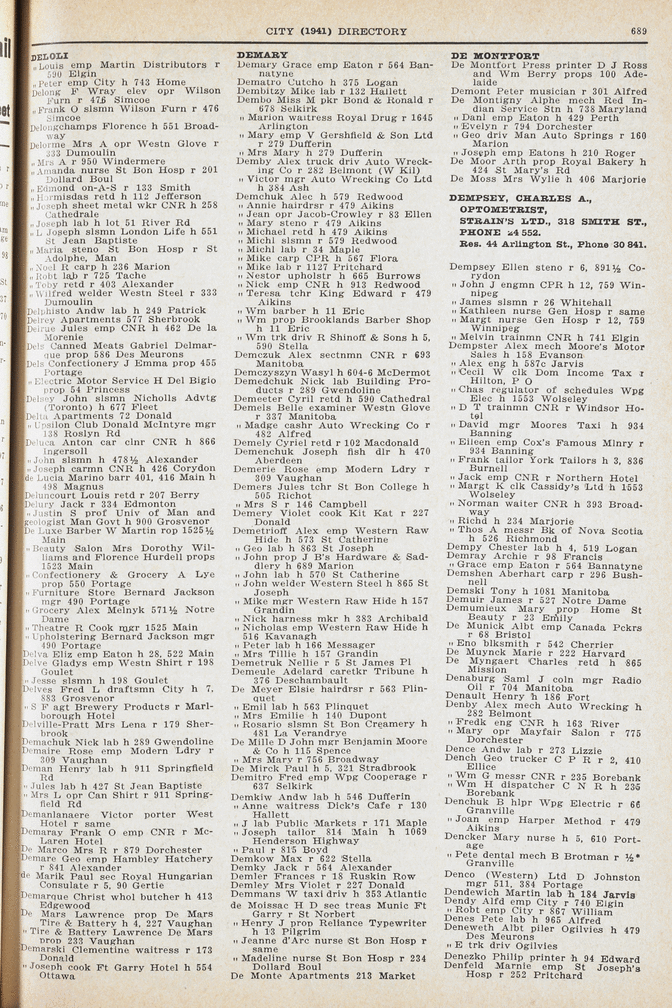 CITY (1941) DIRECTORY 689
DELOLI
" Louis emp Martin Distributors r
590 Elgin
" Peter emp City h 743 Home
Delong F Wray elev opr Wilson
Furn r 476 Simcoe
" Frank O slsmn Wilson Furn r 476
Simcoe
Delongchamps Florence h 551 Broad-
way
Delorme Mrs A opr Westn Glove r
333 Dumoulin
" Mrs A r 950 Windermere
" Amanda nurse St Bon Hosp r 201
Dollard Boul
" Edmond on-A-S r 133 Smith
" Hormisdas retd h 112 Jefferson
" Joseph sheet metal wkr CNR h 258
Cathedrale
" Joseph lab h lot 51 River Rd
" L Joseph slsmn London Life h 551
St Jean Baptiste
" Maria steno St Bon Hosp r St
Adolphe, Man
" Noel R carp h 236 Marion
" Robt lab r 725 Tache
" Toby retd r 403 Alexander
" Wilfred welder Westn Steel r 333
Dumoulin
Delphisto Andw lab h 249 Patrick
Delrey Apartments 577 Sherbrook
Delrue Jules emp CNR h 462 De la
Morenie
Dels Canned Meats Gabriel Delmar-
que prop 586 Des Meurons
Dels Confectionery J Emma prop 455
Portage
" Electric Motor Service H Del Bigio
prop 54 Princess
Delsey John slsmn Nicholls Advtg
(Toronto) h 677 Fleet
Delta Apartments 72 Donald
" Upsilon Club Donald McIntyre mgr
138 Roslyn Rd
Deluca Anton car clnr CNR h 866
Ingersoll
" John slsmn h 478½ Alexander
" Joseph carmn CNR h 426 Corydon
de Lucia Marino barr 401, 416 Main h
498 Magnus
Deluncourt Louis retd r 207 Berry
Delury Jack r 334 Edmonton
" Justin S prof Univ of Man and
geologist Man Govt h 900 Grosvenor
De Luxe Barber W Martin rop 1525½
Main
" Beauty Salon Mrs Dorothy Wil-
liams and Florence Hurdell props
1523 Main
" Confectionery & Grocery A Lye
prop 550 Portage
" Furniture Store Bernard Jackson
mgr 490 Portage
" Grocery Alex Melnyk 571½ Notre
Dame
" Theatre R Cook mgr 1525 Main
" Upholstering Bernard Jackson mgr
490 Portage
Delva Eliz emp Eaton h 28, 522 Main
Delve Gladys emp Westn Shirt r 198
Goulet
" Jesse slsmn h 198 Goulet
Delves Fred L draftsmn City h 7,
883 Grosvenor
" S F agt Brewery Products r Marl-
borough Hotel
Delville-Pratt Mrs Lena r 179 Sher-
brook
Demachuk Nick lab h 289 Gwendoline
Demaire Rose emp Modern Ldry r
309 Vaughan
Deman Henry lab h 911 Springfield
Rd
" Jules lab h 427 St Jean Baptiste
" Mrs L opr Can Shirt r 911 Spring-
field Rd
Demanlannaere Victor porter West
Hotel r same
Demaray Frank O emp CNR r Mc-
Laren Hotel
De Marco Mrs R r 879 Dorchester
Demare Geo emp Hambley Hatchery
r 841 Alexander
de Marik Paul sec Royal Hungarian
Consulate r 5, 90 Gertie
Demarque Christ whol butcher h 413
Edgewood
De Mars Lawrence prop De Mars
Tire & Battery h 4, 227 Vaughan
" Tire & Battery Lawrence De Mars
prop 233 Vaughan
Demarski Clementine waitress r 173
Donald
" Joseph cook Ft Garry Hotel h 554
Ottawa
DEMARY
Demary Grace emp Eaton r 564 Ban-
natyne
Dematro Cutcho h 375 Logan
Dembitzky Mike lab r 132 Hallett
Dembo Miss M pkr Bond & Ronald r
678 Selkirk
" Marion waitress Royal Drug r 1645
Arlington
" Mary emp V Gershfield & Son Ltd
r 279 Dufferin
" Mrs Mary h 279 Dufferin
Demby Alex truck driv Auto Wreck-
ing Co r 282 Belmont (W Kil)
" Victor mgr Auto Wrecking Co Ltd
h 384 Ash
Demchuk Alec h 579 Redwood
" Annie hairdrsr r 479 Aikins
" Jean opr Jacob-Crowley r 83 Ellen
" Mary steno r 479 Aikins
" Michael retd h 479 Aikins
" Michl slsmn r 579 Redwood
" Michl lab r 34 Maple
" Mike carp CPR h 567 Flora
" Mike lab r 1127 Pritchard
" Nestor upholstr h 665 Burrows
" Nick emp CNR h 913 Redwood
" Teresa tchr King Edward r 479
Aikins
" Wm barber h 11 Eric
" Wm prop Brooklands Barber Shop
h 11 Eric
" Wm trk driv R Shinoff & Sons h 5,
590 Stella
Demczuk Alex sectnmn CNR r 693
Manitoba
Demczyszyn Wasyl h 604-6 McDermot
Demedchuk Nick lab Building Pro-
ducts r 289 Gwendoline
Demeeter Cyril retd h 590 Cathedral
Demels Belle examiner Westn Glove
r 337 Manitoba
" Madge cashr Auto Wrecking Co r
482 Alfred
Demelt Cyriel retd r 102 Macdonald
Demenchuk Joseph fish dlr h 470
Aberdeen
Demerie Rose emp Modern Ldry r
309 Vaughan
Demers Jules tchr St Bon College h
505 Richot
" Mrs S r 146 Campbell
Demery Violet cook Kit Kat r 227
Donald
Demetrioff Alex emp Western Raw
Hide h 573 St Catherine
" Geo lab h 863 St Joseph
" John prop J B's Hardware & Sad-
dlery h 689 Marion
" John lab h 570 St Catherine
" John welder Western Steel h 865 St
Joseph
" Mike mgr Western Raw Hide h 157
Grandin
" Nick harness mkr h 383 Archibald
" Nicholas emp Western Raw Hide h
516 Kavanagh
" Peter lab h 166 Messager
" Mrs Tillie h 157 Grandin
Demetruk Nellie r 5 St James Pl
Demeule Adelard caretkr Tribune h
376 Deschambault
De Meyer Elsie hairdrsr r 563 Plin-
quet
" Emil lab h 563 Plinquet
" Mrs Emilie h 140 Dupont
" Rosario slsmn St Bon Creamery h
481 La Verandrye
De Mille D John mgr Benjamin Moore
& Co h 115 Spence
" Mrs Mary r 756 Broadway
De Mirck Paul h 5, 321 Stradbrook
Demitro Fred emp Wpg Cooperage r
637 Selkirk
Demkiw Andw lab h 546 Dufferin
" Anne waitress Dick's Cafe r 130
Hallett
" J lab Public Markets r 171 Maple
" Joseph tailor 814 Main h 1069
Henderson Highway
" Paul r 815 Boyd
Demkow Max r 622 Stella
Demky Jack r 564 Alexander
Demler Frances r 18 Ruskin Row
Demley Mrs Violet r 227 Donald
Demmans W taxi driv h 353 Atlantic
de Moissac H D sec treas Munic Ft
Garry r St Norbert
" Henry J prop Reliance Typewriter
h 13 Pilgrim
" Jeanne d'Arc nurse St Bon Hosp r
same
" Madeline nurse St Bon Hosp r 234
Dollard Boul
De Monte Apartments 213 Market
DE MONTFORT
De Montfort Press printer D J Ross
and Wm Berry props 100 Ade-
laide
Demont Peter musician r 301 Alfred
De Montigny Alphe mech Red In-
dian Service Stn h 738 Maryland
" Danl emp Eaton h 429 Perth
" Evelyn r 794 Dorchester
" Geo driv Man Auto Springs r 160
Marion
" Joseph emp Eatons h 210 Roger
De Moor Arth prop Royal Bakery h
424 St Mary's Rd
De Moss Mrs Wylie h 406 Marjorie
DEMPSEY, CHARLES A.,
OPTOMETRIST,
STRAIN'S LTD., 318 SMITH ST.,
PHONE 24 552.
Res. 44 Arlington St., Phone 30 841.
Dempsey Ellen steno r 6, 891½ Co-
rydon
" John J engmn CPR h 12, 759 Win-
nipeg
" James slsmn r 26 Whitehall
" Kathleen nurse Gen Hosp r same
" Margt nurse Gen Hosp r 12, 759
Winnipeg
" Melvin trainmn CNR h 741 Elgin
Dempster Alex mech Moore's Motor
Sales h 158 Evanson
" Alex eng h 587c Jarvis
" Cecil W clk Dom Income Tax r
Hilton, P O
" Chas regulator of schedules Wpg
Elec h 1553 Wolseley
" D T trainmn CNR r Windsor Ho-
tel
" David mgr Moores Taxi h 934
Banning
" Eileen emp Cox's Famous Mlnry r
934 Banning
" Frank tailor York Tailors h 3, 836
Burnell
" Jack emp CPR r Northern Hotel
" Margt K clk Cassidy's Ltd h 1553
Wolseley
" Norman waiter CNR h 393 Broad-
way
" Richd h 234 Marjorie
" Thos A messr Bk of Nova Scotia
h 526 Richmond
Dempy Chester lab h 4, 519 Logan
Demray Archie r 98 Francis
" Grace emp Eaton r 564 Bannatyne
Demshen Aberhart carp r 296 Bush-
nell
Demski Tony h 1081 Manitoba
Demuir James r 527 Notre Dame
Demumieux Mary prop Home St
Beauty r 23 Emily
De Munick Albt emp Canada Pckrs
r 68 Bristol
" Eno blksmith r 542 Cherrier
De Muynck Marie r 222 Harvard
De Myngaert Charles retd h 865
Mission
Denaburg Saml J coln mgr Radio
Oil r 704 Manitoba
Denault Henry h 186 Fort
Denby Alex mech Auto Wrecking h
282 Belmont
" Fredk eng CNR h 163 River
" Mary opr Mayfair Salon r 775
Dorchester
Dence Andw lab r 273 Lizzie
Dench Geo trucker C P R r 2, 410
Ellice
" Wm G messr CNR r 235 Borebank
" Wm H dispatcher C N R h 235
Borebank
Denchuk B hlpr Wpg Electric r 66
Granville
" Joan emp Harper Method r 479
Aikins
Dencker Mary nurse h 5, 610 Port-
age
" Pete dental mech B Brotman r ½*
Granville
Denco (Western) Ltd D Johnston
mgr 511, 384 Portage
Dendewich Martin lab h 184 Jarvis
Dendy Alfd emp City r 740 Elgin
" Robt emp City r 867 William
Denes Pete lab h 965 Alfred
Deneweth Albt piler Ogilvies h 479
Des Meurons
" E trk driv Ogilvies
Denezko Philip printer h 94 Edward
Denfeld Marnie emp St Joseph's
Hosp r 252 Pritchard